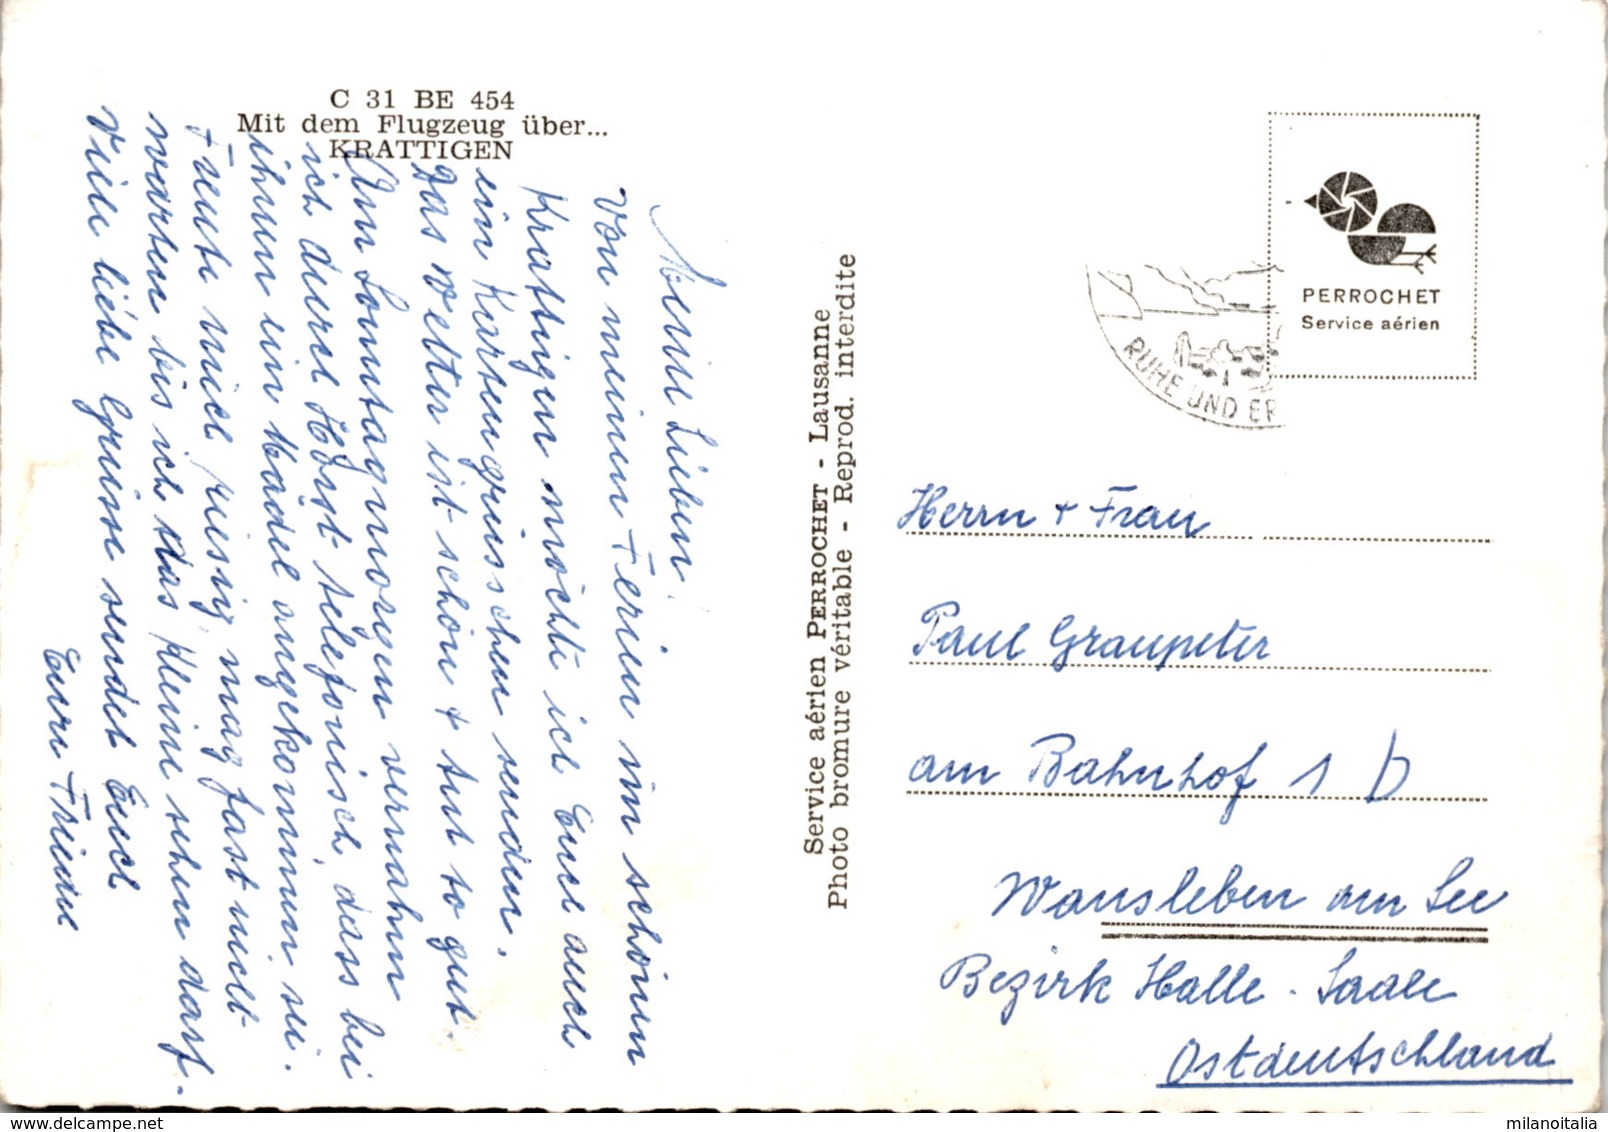 C 31 BE 454
Mit dem Flugzeug über...
KRATTIGEN
Meine Lieben!
Von meinen Ferien im schönen
Krattigen möchte ich Euch auch
ein Kartengrüsschen senden.
Das Wetter ist schön + tut so gut.
Am Sonntagmorgen vernahm
ich durch Horst telefonisch, dass bei
ihnen ein Mädel angekommen sei.
Freute mich riesig mag fast nicht
warten bis ich das Kleine sehen darf.
Viele liebe Grüsse sendet Euch
Eure Friedel
Service aérien PERROCHET - Lausanne
Photo bromure véritable - Reprod. interdite
PERROCHET
Service aérien
RUHE UND ER
Herrn + Frau
Paul Graupeter
am Bahnhof 1 b
Wansleben am See
Bezirk Halle - Saale
Ostdeutschland
www.delcampe.net
milanoitalia